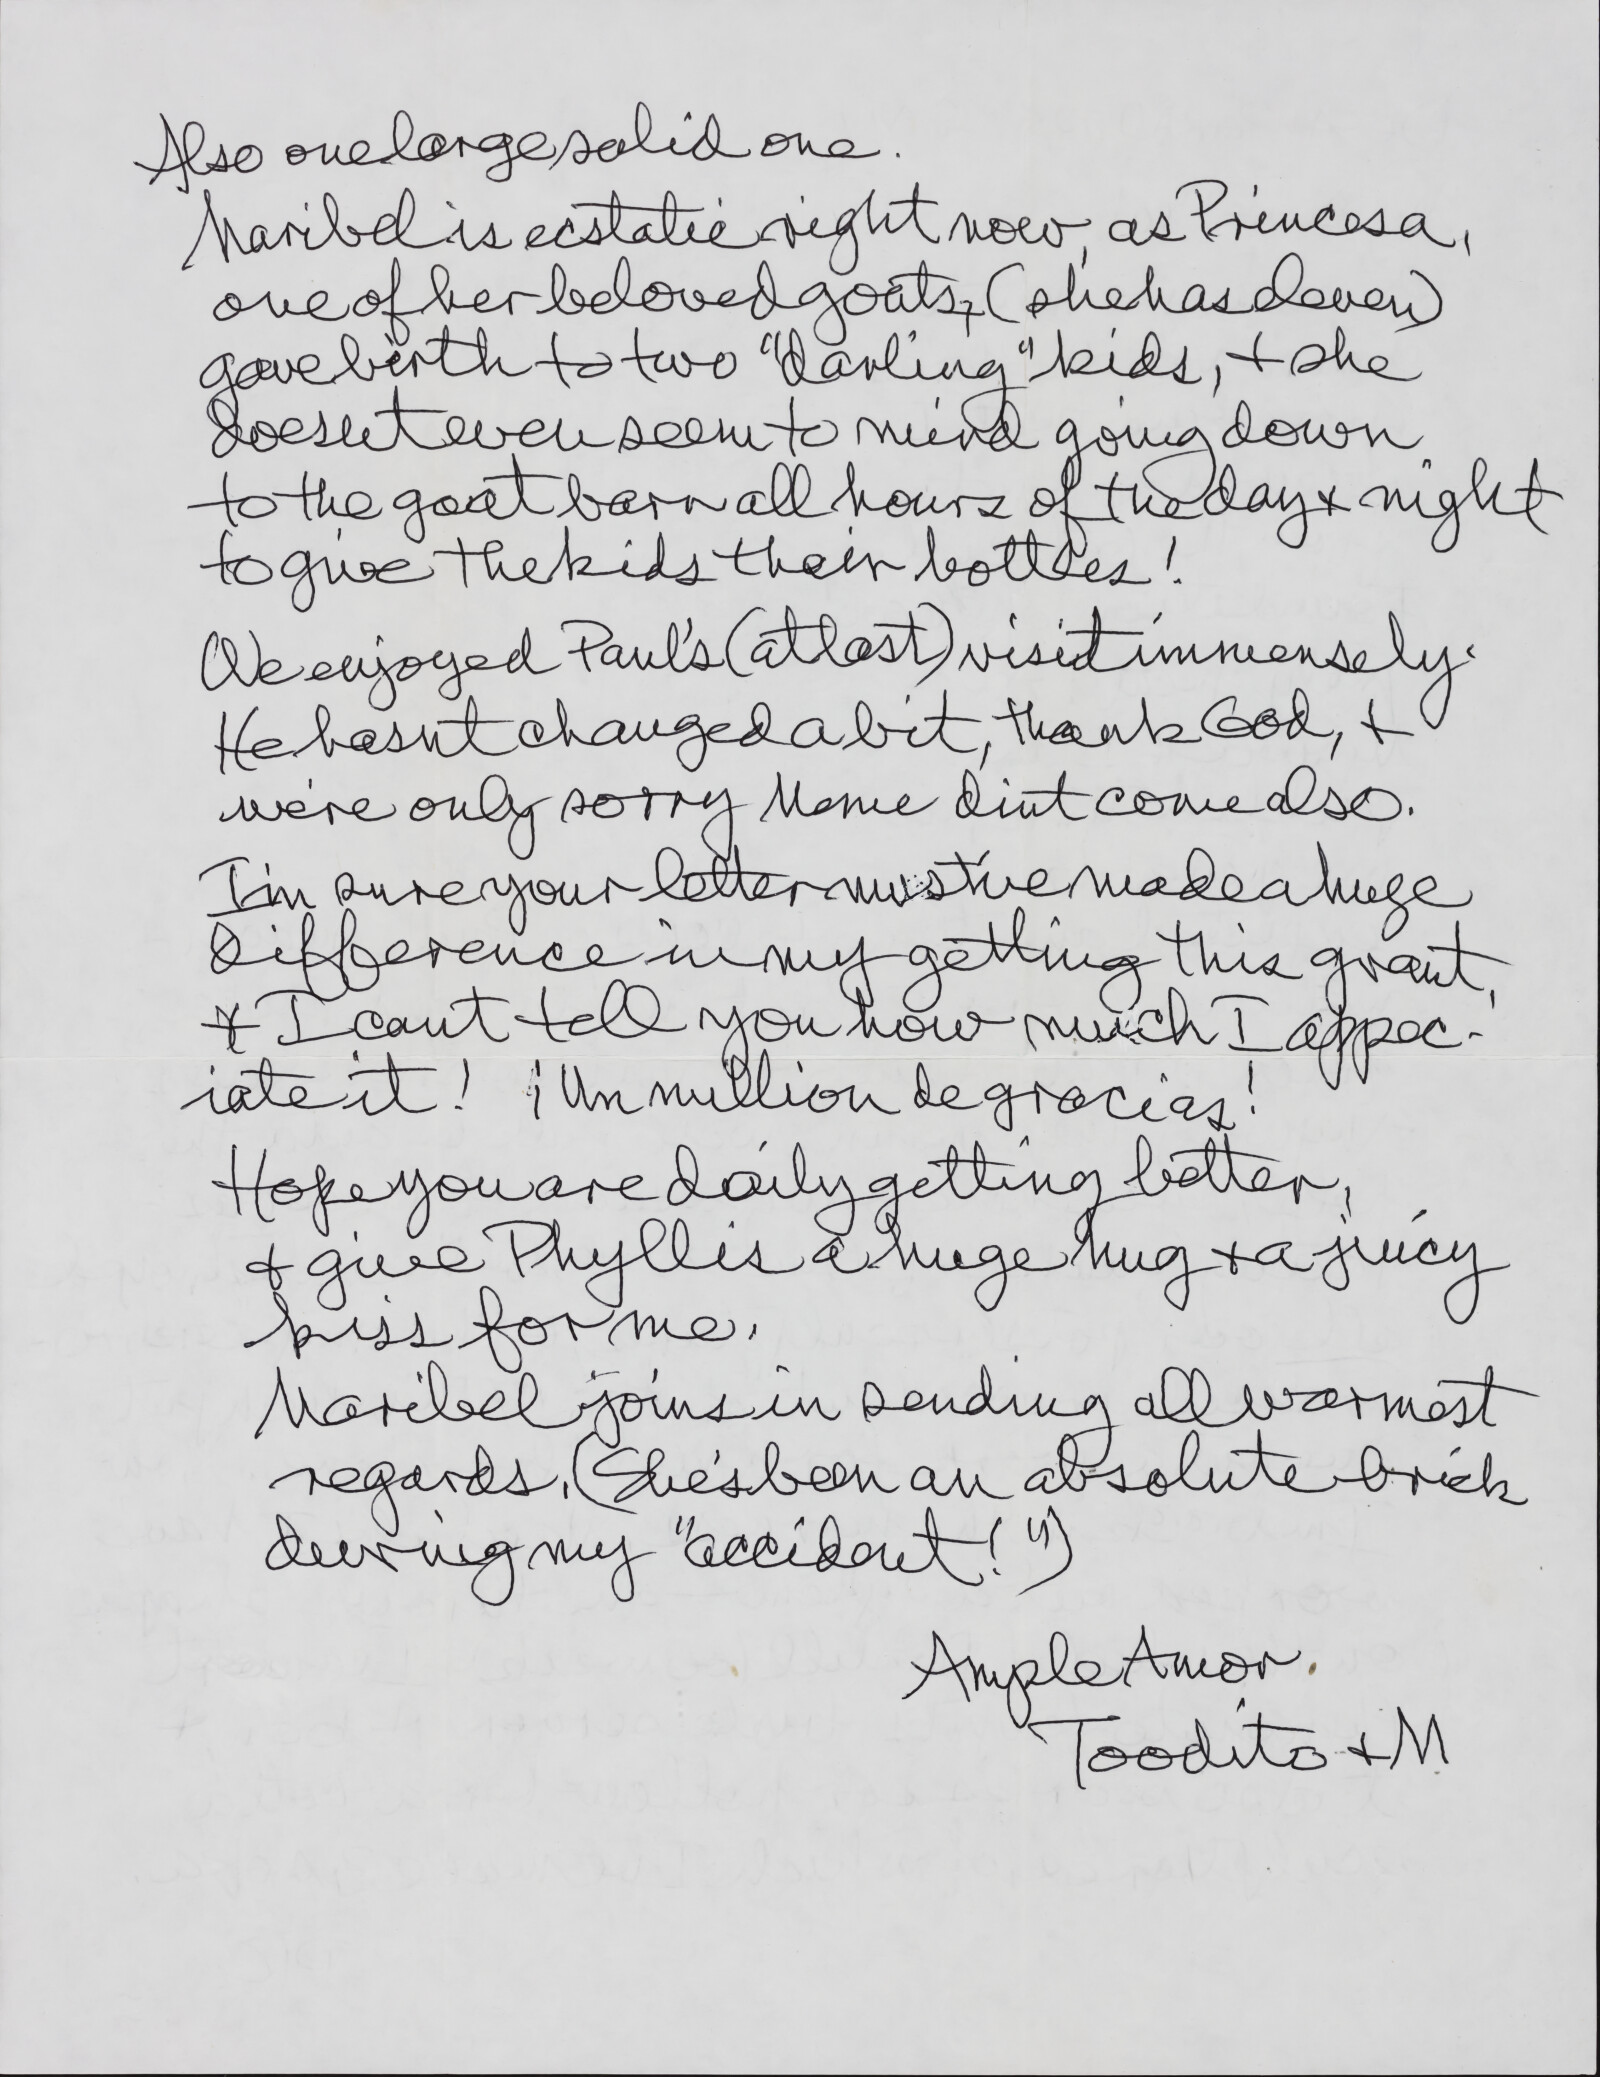 Also one large solid one.
Maribel is ecstatic right now, as Princesa,
one of her beloved goats, (she has eleven)
gave birth to two "darling" kids, + she
doesn't even seem to mind going down
to the goat barn all hours of the day + night
to give the kids their bottles!
We enjoyed Paul's (at last) visit immensely.
He hasn't changed a bit, thank God, +
we're only sorry Mame din't come also.
I'm sure your letter must've made a huge
difference in my getting this grant,
+ I can't tell you how much I appec-
iate it! ¡Un million de gracias!
Hope you are daily getting better,
+ give Phyllis a huge hug + a juicy
kiss for me.
Maribel joins in sending all warmest
regards. (She's been an absolute brick
during my "accident!")
Ample Amor.
Toodito + M